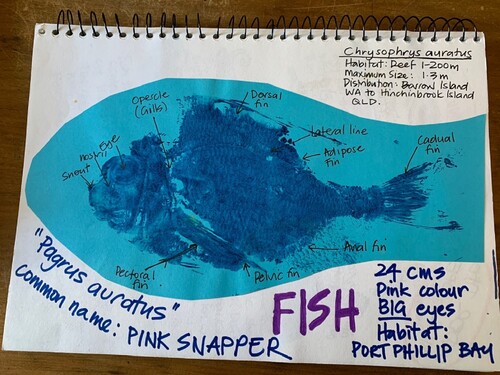 Chrysophrys auratus
Habitat: Reef 1-200m
Maximum Size: 1.3m
Distribution: Barrow Island
WA to Hinchinbrook Island
QLD.
Opercle
(Gills)
Dorsal
fin
eye
nostril
Snout
Lateral line
Adipose
fin
Cadual
fin
Pectoral
fin
Pelvic fin
Anal fin
"Pagrus auratus"
common name: PINK SNAPPER
FISH
24 CMS
Pink colour
BIG eyes
Habitat:
PORT PHILLIP BAY